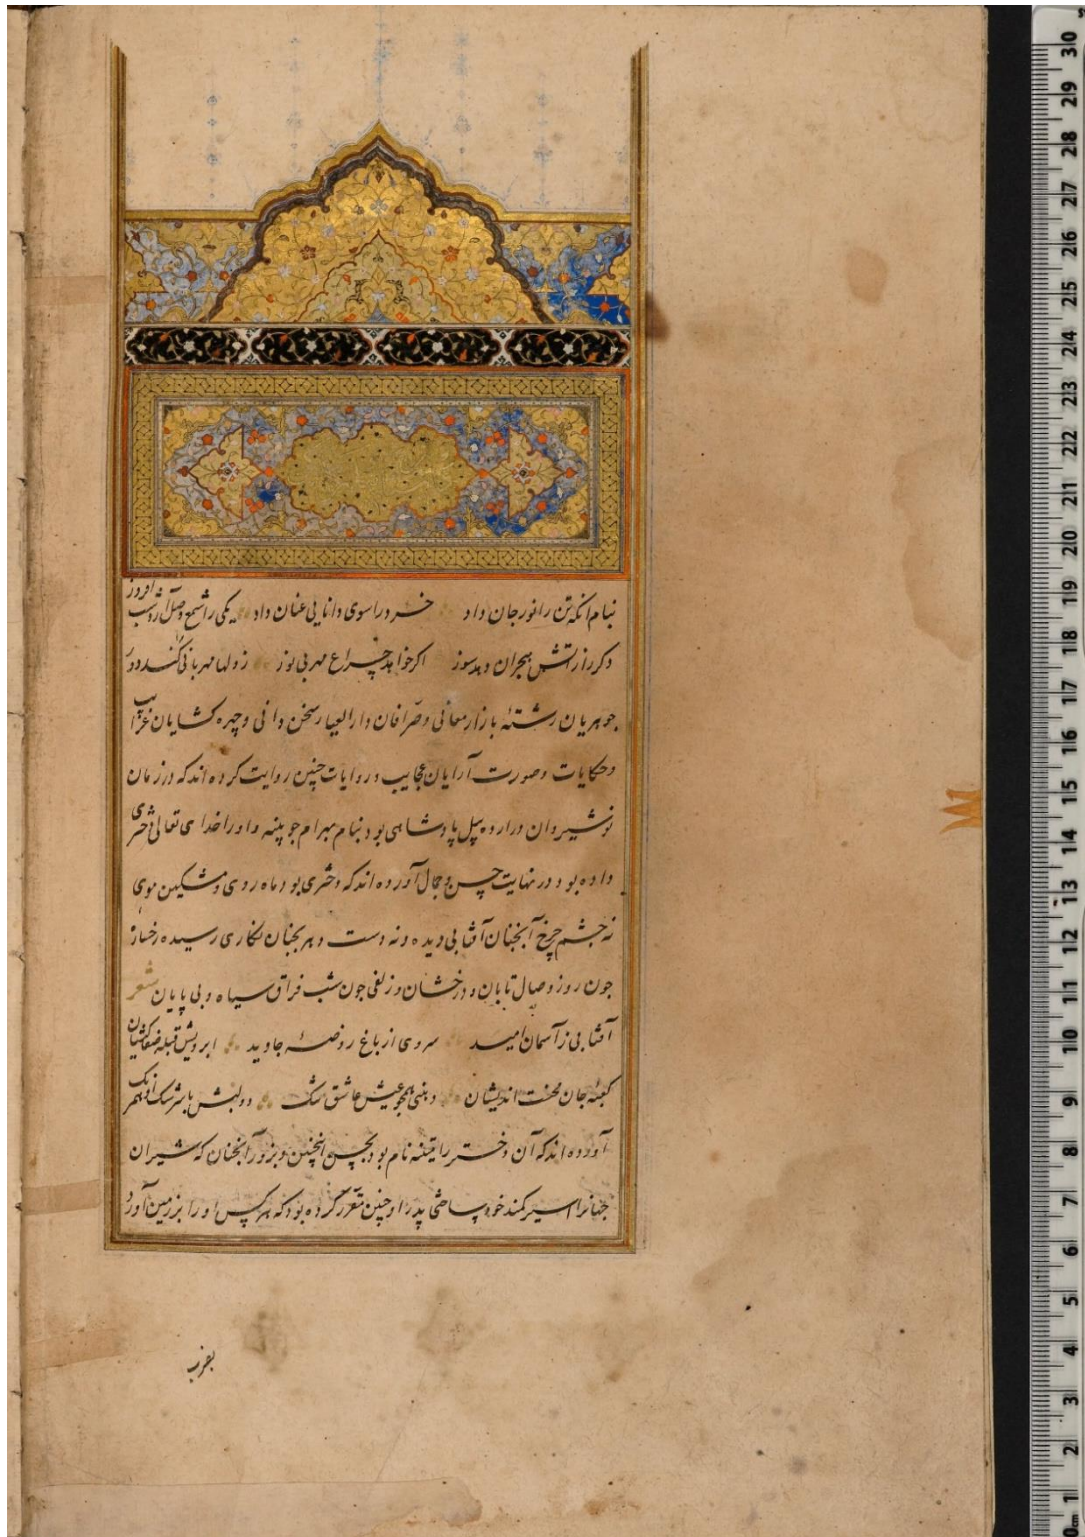 بنام آنکه تن را نور جان داد خرد را سوی دانایی عنان داد یکی را شمع وصل از شب افروز
دکر را ز آتش هجران دهد سوز اکر خواهد چراغ مهر بی نوز ز دلها مهربانی کند دور
جوهریان رشتهٔ بازار معانی و صرافان دار العیار سخن دانی و چهره کشایان غرایب
و حکایات و صورت آرایان عجایب و روایات چنین روایت کرده اند که در زمان
نوشیروان در اردبیل پادشاهی بود بنام بهرام جوبینه و او را خدای تعالی دختری
داده بود در نهایت حسن و جمال آورده اند که دختری بود ماه روی و مشکین موی
نه چشم چرخ آنجنان آفتابی دیده و نه دست دهر بجنان نکاری رسیده رخساره
جون روز وصال تابان و درخشان و زلفی جون شب فراق سیاه و بی پایان شعر
آفتابی ز آسمان امید سروی از باغ روضهٔ جاوید ابرویش قبلهٔ صفاکیشان
کعبهٔ جان محنت اندیشان دهنی همجو عیش عاشق تنک دو لبش با سرشک او یکرنک
آورده اند که آن دختر را نام بود بحسن انچنین و بزور آنجنان که شیران
جهانرا اسیر کمند خود ساختی پدر او چنین مقرر کرده بود که هر کس او را بر زمین آورد
بضرب
30 29 28 27 26 25 24 23 22 21 20 19 18 17 16 15 14 13 12 11 10 9 8 7 6 5 4 3 2 1 0 cm